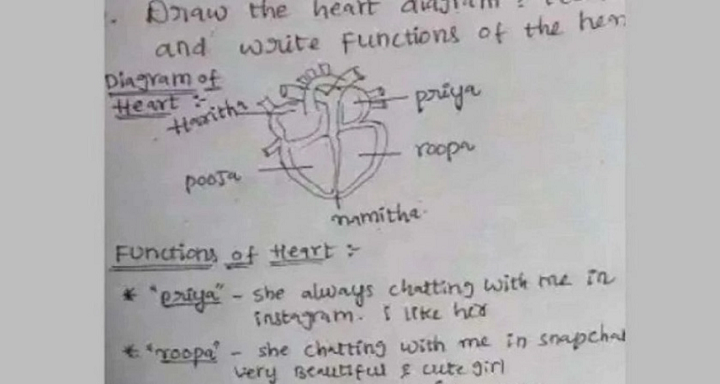 . Draw the heart diagram
and write functions of the
Diagram of
Heart :-
Haritha
priya
roopa
pooja
namitha.
Functions of Heart :-
* "priya" - she always chatting with me in
instagram. i like her
* "roopa" - she chatting with me in snapchat
very Beautiful & cute girl